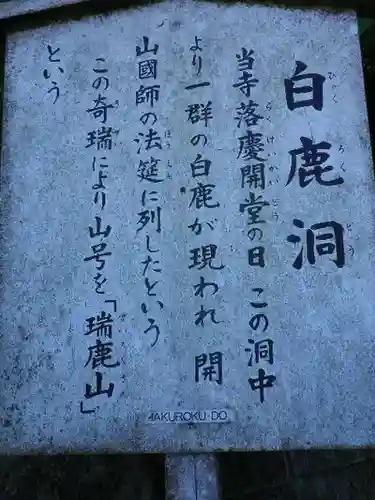 白鹿洞
当寺落慶開堂の日 この洞中
より一群の白鹿が現われ 開
山國師の法筵に列したという
この奇瑞により山号を「瑞鹿山」
という
HAKUROKU-DO